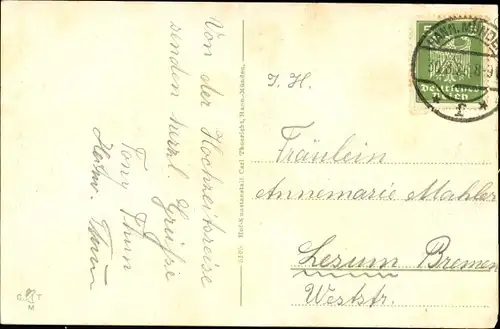 Von der Hochzeitsreise
senden herzl. Grüße
Tony Thun
Herm. Thun
5 5
Deutsches
Reich
HANN. MÜNDEN
* f *
I. H.
Fräulein
Annemarie Mahler
Lesum Bremen
Weststr.
Hof-Kunstanstalt Carl Thoericht, Hann.-Münden.
C. T
M